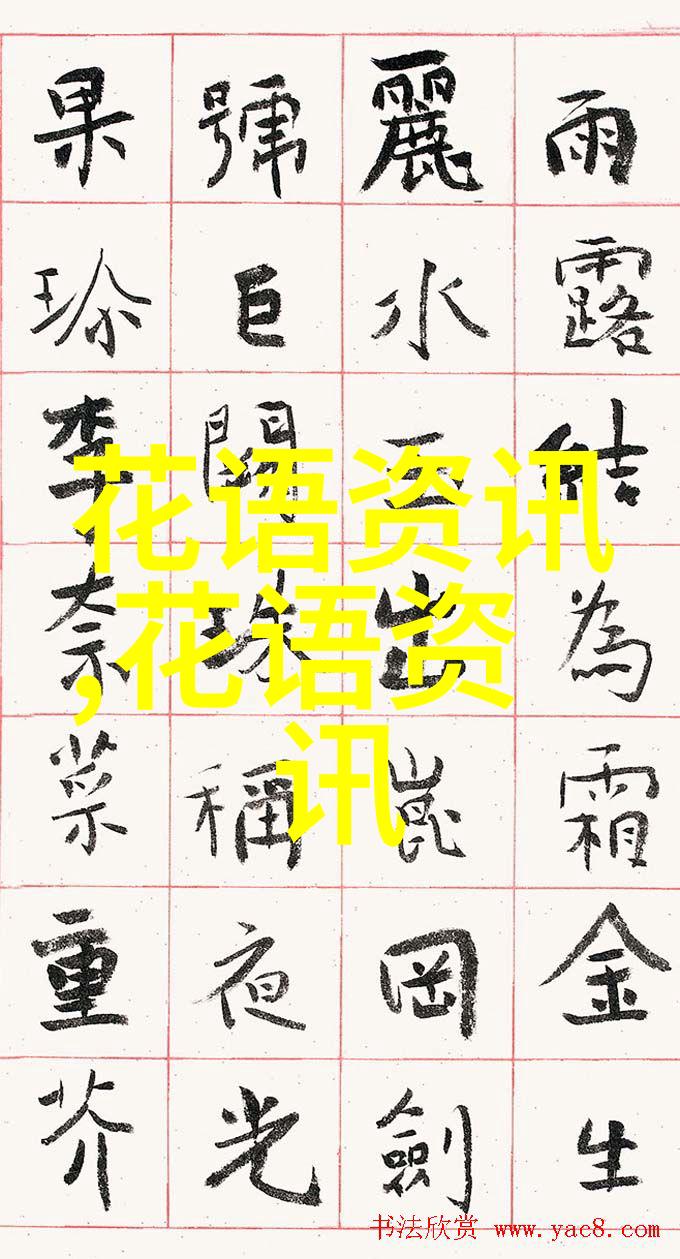 雨露結為霜金生
麗水玉出崑岡劍
號巨闕珠稱夜光
果珍李奈菜重芥
花语资讯
,花语资
讯
书法欣赏 www.yac8.com